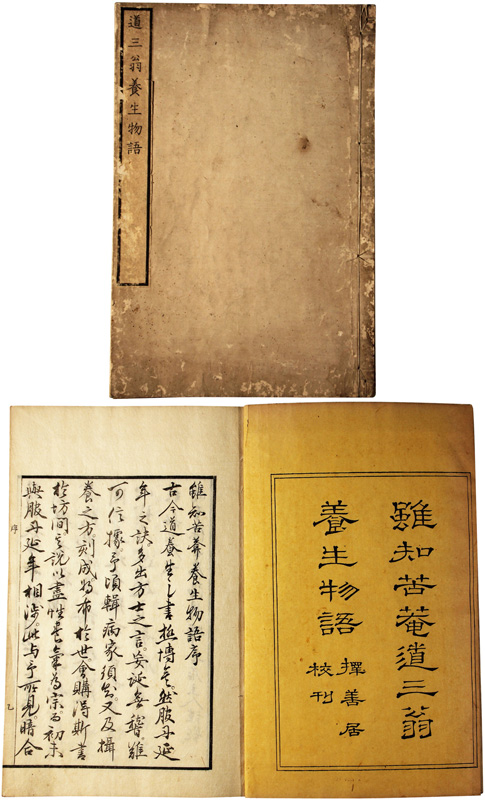 道三翁養生物語
雖知苦菴道三翁
養生物語
擇善居
校刊
雖知苦菴養生物語序
古今道養生之書極博矣然服丹延
年之訣多出方士之言妄誕無稽難
可信據予頃輯病家須知又及揖
養之方刻成將布於世會購得斯書
於坊間其說以盡性長命為宗而初未
與服丹延年相涉此与予所見暗合
序
乙